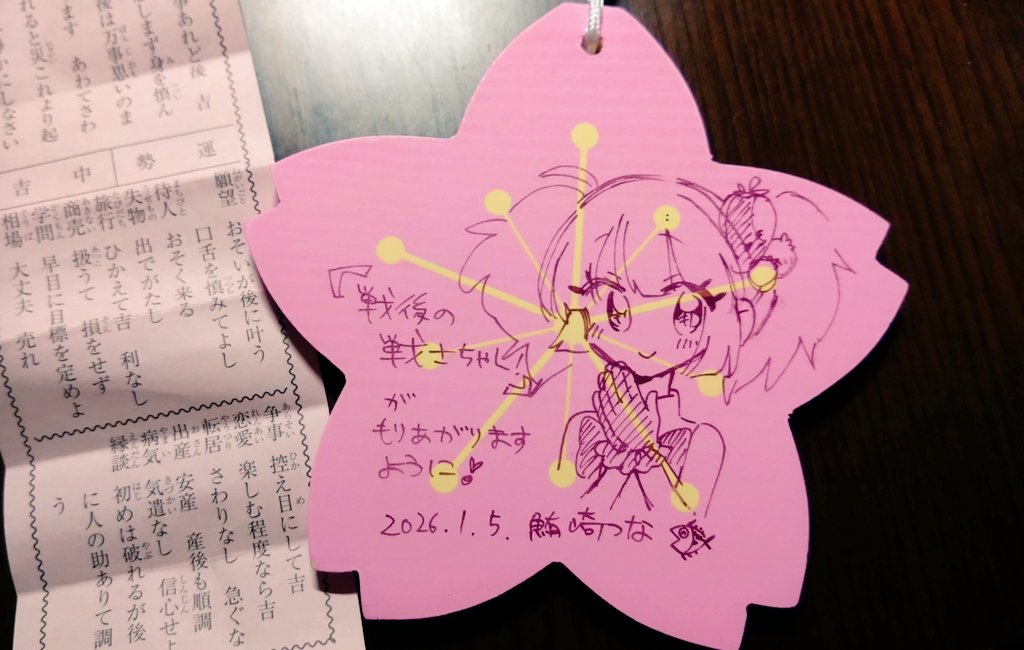 事あれど後 吉
しまず身を慎ん
後は万事思いのま
ます あわてさわ
れると災これより起
かにしなさい
運勢
中吉
願望 おそいが後に叶う
口舌を慎みてよし
待人 おそく来る
失物 出でがたし
旅行 ひかえて吉 利なし
商売 扱うて 損をせず
学問 早目に目標を定めよ
相場 大丈夫 売れ
争事 控え目にして吉
恋愛 楽しむ程度なら吉
転居 さわりなし 急ぐな
出産 安産 産後も順調
病気 気遣なし 信心せよ
縁談 初めは破れるが後
に人の助ありて調
う
『戦後の
戦さちゃん』
が
もりあがります
ように!
2026.1.5. 鮪崎つな